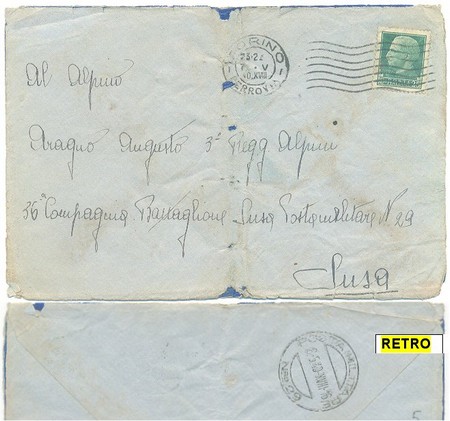 TORINO
23-24
7 - V
40.XVIII
FERROVIA
Al Alpino
Aragno Augusto 3º Regg Alpini
36ª Compagnia Battaglione Susa Posta militare N 29
Susa
RETRO
POSTA MILITARE
5